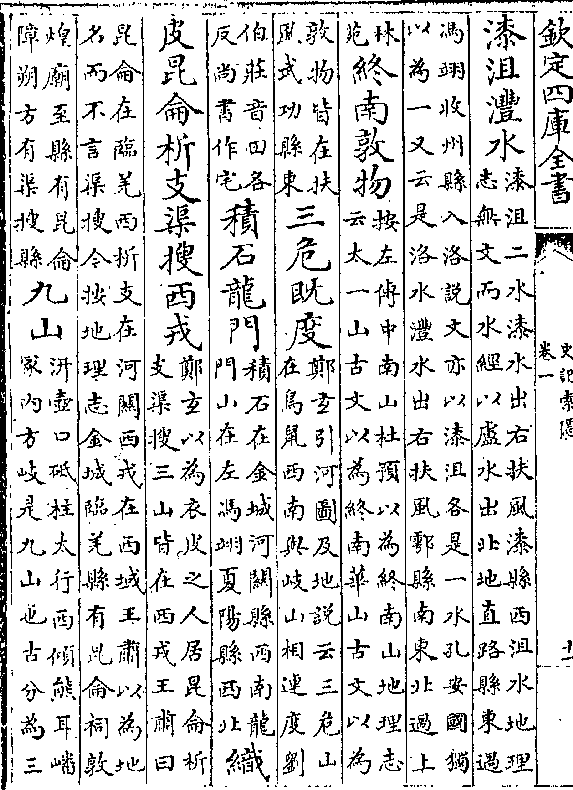 欽定四庫全書
史記索隱
卷一
十一
漆沮灃水
漆沮二水漆水出右扶風漆縣西沮水地理
志無文而水經以盧水出北地直路縣東過
馮翊收州縣入洛說文亦以漆沮各是一水孔安國獨
以為一又云是洛水灃水出右扶風鄠縣南東北過上
林
苑
終南敦物
按左傳中南山杜預以為終南山地理志
云太一山古文以為終南華山古文以為
敦物皆在扶
風武功縣東
三危既度
鄭玄引河圖及地說云三危山
在鳥鼠西南與岐山相連度劉
伯莊音田各
反尚書作宅
積石龍門
積石在金城河關縣西南龍
門山在左馮翊夏陽縣西北
織
皮昆侖析支渠搜西戎
鄭玄以為衣皮之人居昆侖析
支渠搜三山皆在西戎王肅曰
昆侖在臨羌西析支在河關西戎在西域王肅以為地
名而不言渠搜今按地理志金城臨羌縣有昆侖祠敦
煌廟至縣有昆侖
障朔方有渠搜縣
九山
汧壺口砥柱太行西傾熊耳嶓
冢內方岐是九山也古分為三